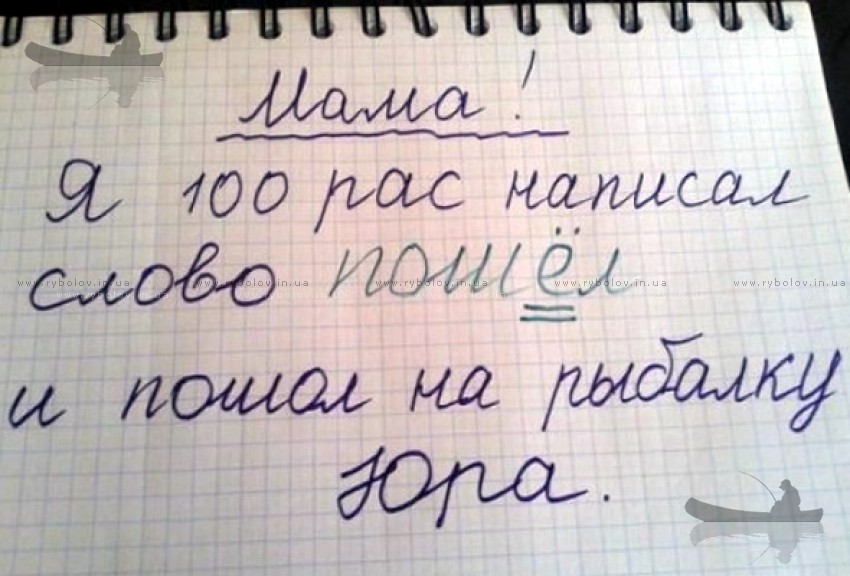 Мама!
Я 100 рас написал
слово пошёл
www.rybolov.in.ua www.rybolov.in.ua www.rybolov.in.ua www.rybolov.in.ua www.rybolov.in.ua www.rybolov.in.ua
и пошол на рыбалку
Юра.